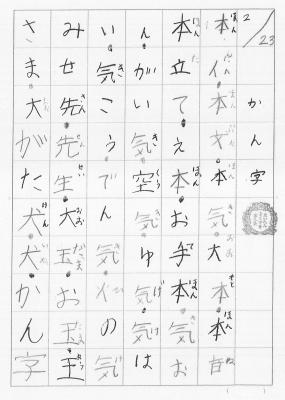 2/23 かん字
本人本文本気大本本音
本立てえ本お手本気お
んがい気空気ゆ気気は
い気こうでん気人の気
みせ先先生大玉お玉王
さま大がた犬犬かん字